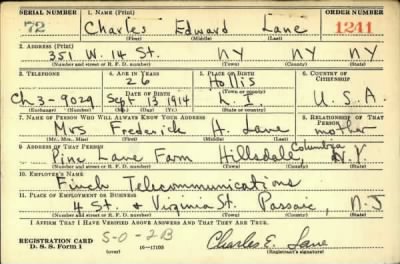 SERIAL NUMBER 1. NAME (Print) ORDER NUMBER
72 Charles Edward Lane 1241
(First) (Middle) (Last)
2. ADDRESS (Print)
351 W. 14 St. NY NY NY
(Number and street or R. F. D. number) (Town) (County) (State)
3. TELEPHONE 4. AGE IN YEARS 5. PLACE OF BIRTH 6. COUNTRY OF CITIZENSHIP
26 Hollis
DATE OF BIRTH (Town or county)
Ch 3-9029 Sept 13 1914 L. I. U. S. A.
(Exchange) (Number) (Mo.) (Day) (Yr.) (State or country)
7. NAME OF PERSON WHO WILL ALWAYS KNOW YOUR ADDRESS 8. RELATIONSHIP OF THAT PERSON
Mrs Frederick H. Lane mother
(Mr., Mrs., Miss) (First) (Middle) (Last)
9. ADDRESS OF THAT PERSON
Pine Lane Farm Hillsdale, Columbia N.Y
(Number and street or R. F. D. number) (Town) (County) (State)
10. EMPLOYER'S NAME
Finch Telecommunications
11. PLACE OF EMPLOYMENT OR BUSINESS
4 St. & Virginia St. Passaic, N J
(Number and street or R. F. D. number) (Town) (County) (State)
I AFFIRM THAT I HAVE VERIFIED ABOVE ANSWERS AND THAT THEY ARE TRUE.
REGISTRATION CARD S-0-2B Charles E. Lane
D. S. S. Form 1 (over) 16—17105 (Registrant's signature)